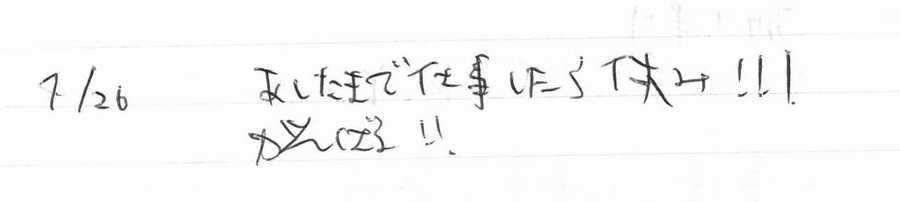 4/26 あしたまで仕事したら休み!!!
がんばる!!